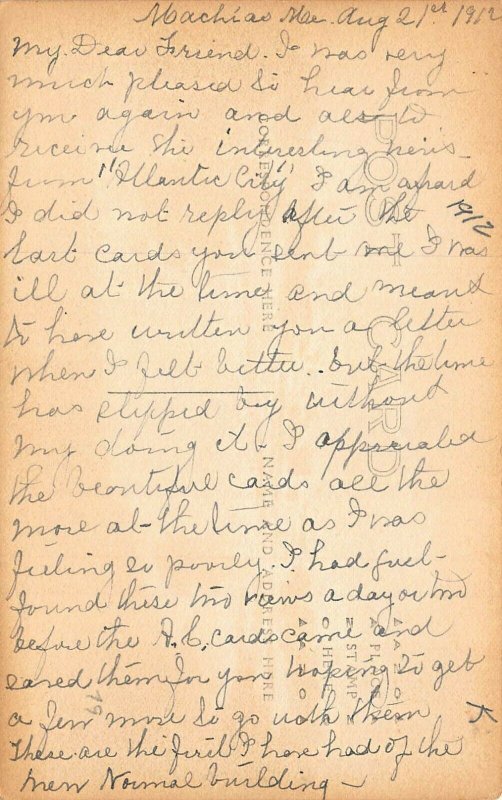 Machias Me. Aug 21st 1912
My Dear Friend. I was very
much pleased to hear from
you again and also to
receive the interesting views
from "Atlantic City" I am afraid
I did not reply after the
last cards you sent me I was
ill at the time and meant
to have written you a letter
when I felt better.. but the time
has slipped by without
my doing it. I appreciated
the beautiful cards all the
more at the time as I was
feeling so poorly. I had just
found these two views a day or two
before the A.C. cards came and
saved them for you hoping to get
a few more to go with them
These are the first I have had of the
new Normal building —
1912
POST CARD
CORRESPONDENCE HERE
NAME AND ADDRESS HERE
PLACE
STAMP
HERE
49
K